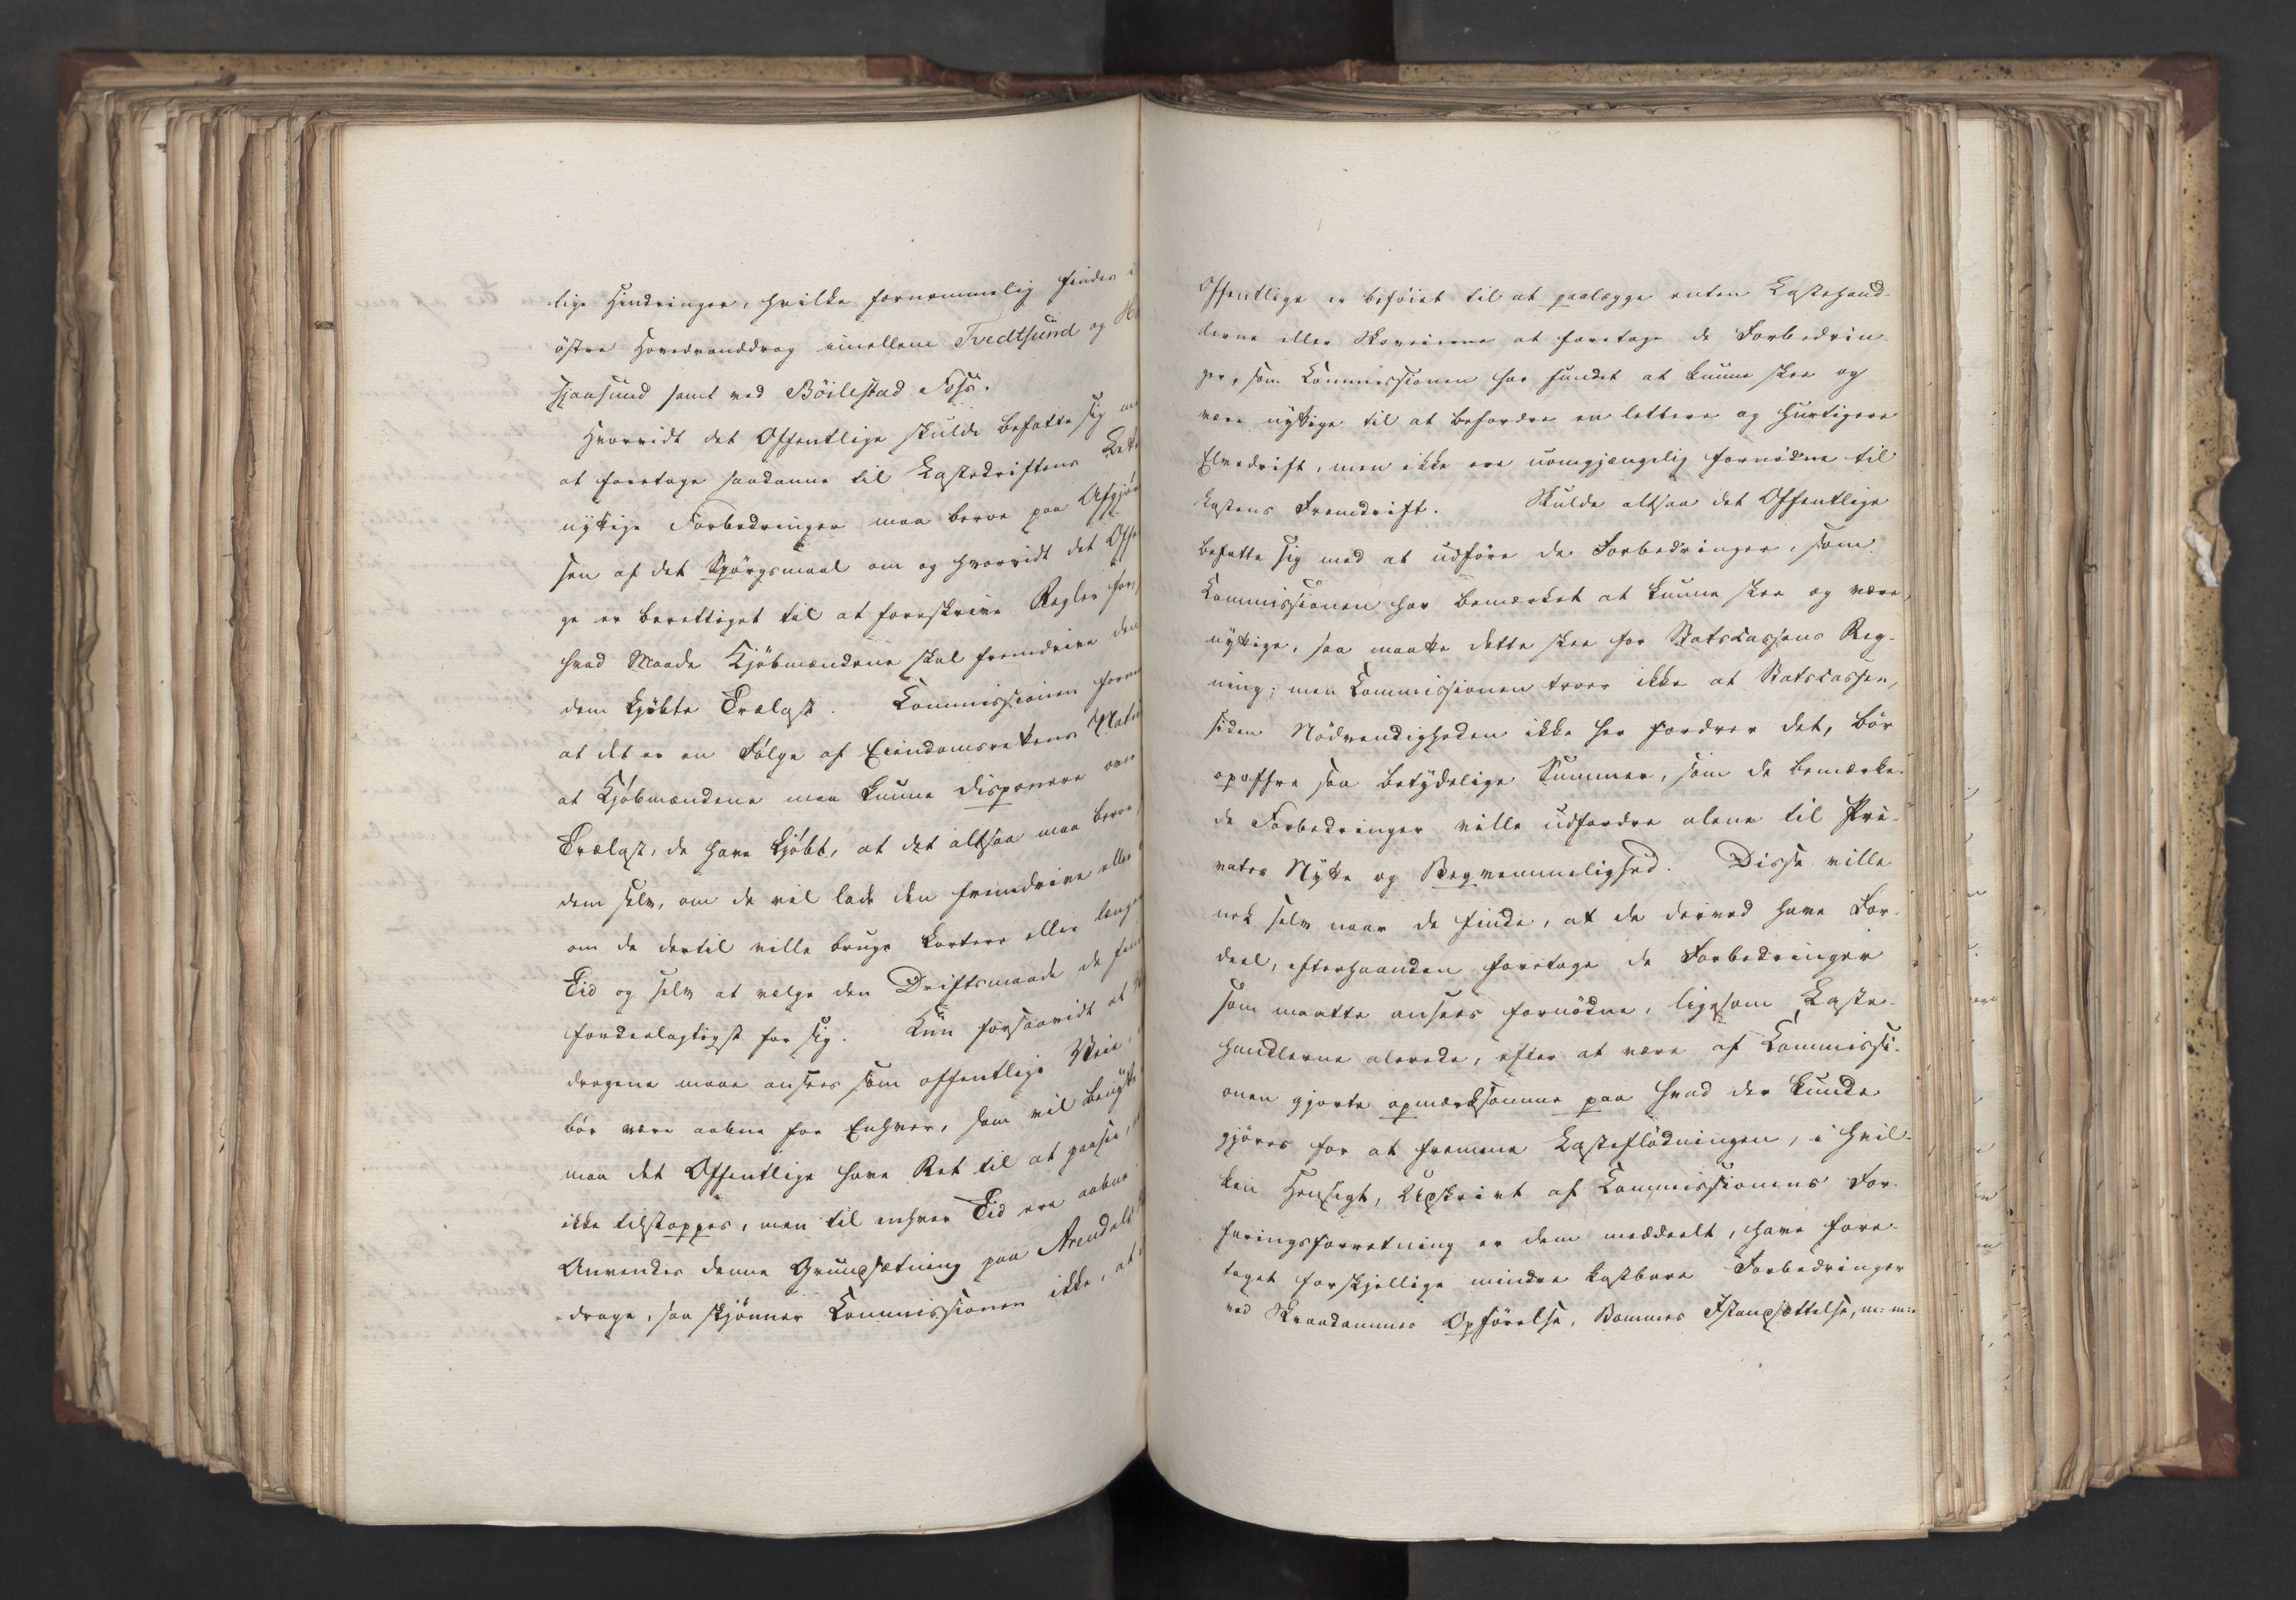 lige Hindringer, hvilke fornemmelig findes i
östre Hovedvanddrag imellem Tvedtsund og
Hjaasund samt ved Böilestad Foss.
Hvorvidt det Offentlige skulde befatte sig
at foretage saadanne til Lastedriftens Let
nyttige Forbedringer maa beroe paa Afgjör
sen af det Spörgsmaal om og hvorvidt det Offe
ge er berettiget til at foreskrive Regler for,
hvad Maade Kjöbmændene skal fremdrive den
dem kjöbte Trælast. Commissionen forme
at det er en Fölge af Eiendomsrettens Natu
at Kjöbmændene maa kunne disponere over
Trælast, de have kjöbt, at det altsaa maa beroe
dem selv, om de vil lade den fremdrive eller
om de dertil ville bruge kortere eller længe
Tid og selv at vælge den Driftsmaade de fin
fordeelagtigst for sig. Kun forsaavidt at
dragene maae ansees som offentlige Veie,
bör være aabne for Enhver, som vil benytte
maa det Offentlige have Ret til at paasee,
ikke tilstoppes, men til enhver Tid ere aabne
Anvendes denne Grundsætning paa Arendals
-drage, saa skjönner Commissionen ikke, at
Offentlige er beföiet til at paalægge enten Lastehand-
lerne eller Skoveierne at foretage de Forbedrin-
ger, som Commissionen har fundet at kunne skee og
være nyttige til at befordre en lettere og hurtigere
Elvedrift, men ikke ere uomgjængelig fornödne til
Lastens Fremdrift. Skulde altsaa det Offentlige
befatte sig med at udföre de Forbedringer, som
Commissionen har bemærket at kunne skee og være
nyttige, saa maatte dette skee for Statscassens Reg-
ning; men Commissionen troer ikke at Statscassen,
siden Nödvendigheden ikke her fordrer det, bör
opoffre saa betydelige Summer, som de bemærke-
de Forbedringer ville udfordre alene til Pri-
vates Nytte og Beqvemmelighed. Disse ville
nok selv naar de finde, at de derved have For-
deel, efterhaanden foretage de Forbedringer
som maatte ansees fornödne, ligesom Laste-
handlerne alerede, efter at være af Commissi-
onen gjorte opmærksomme paa hvad der kunde
gjöres for at fremme Lasteflödningen, i hvil-
ken Hensigt, Udskrivt af Commissionens For-
faringsforretning er dem meddeelt, have fore-
taget forskjellige mindre kostbare Forbedringer
ved Skraadammes Opförelse, Bommes Istandsættelse, m: m: